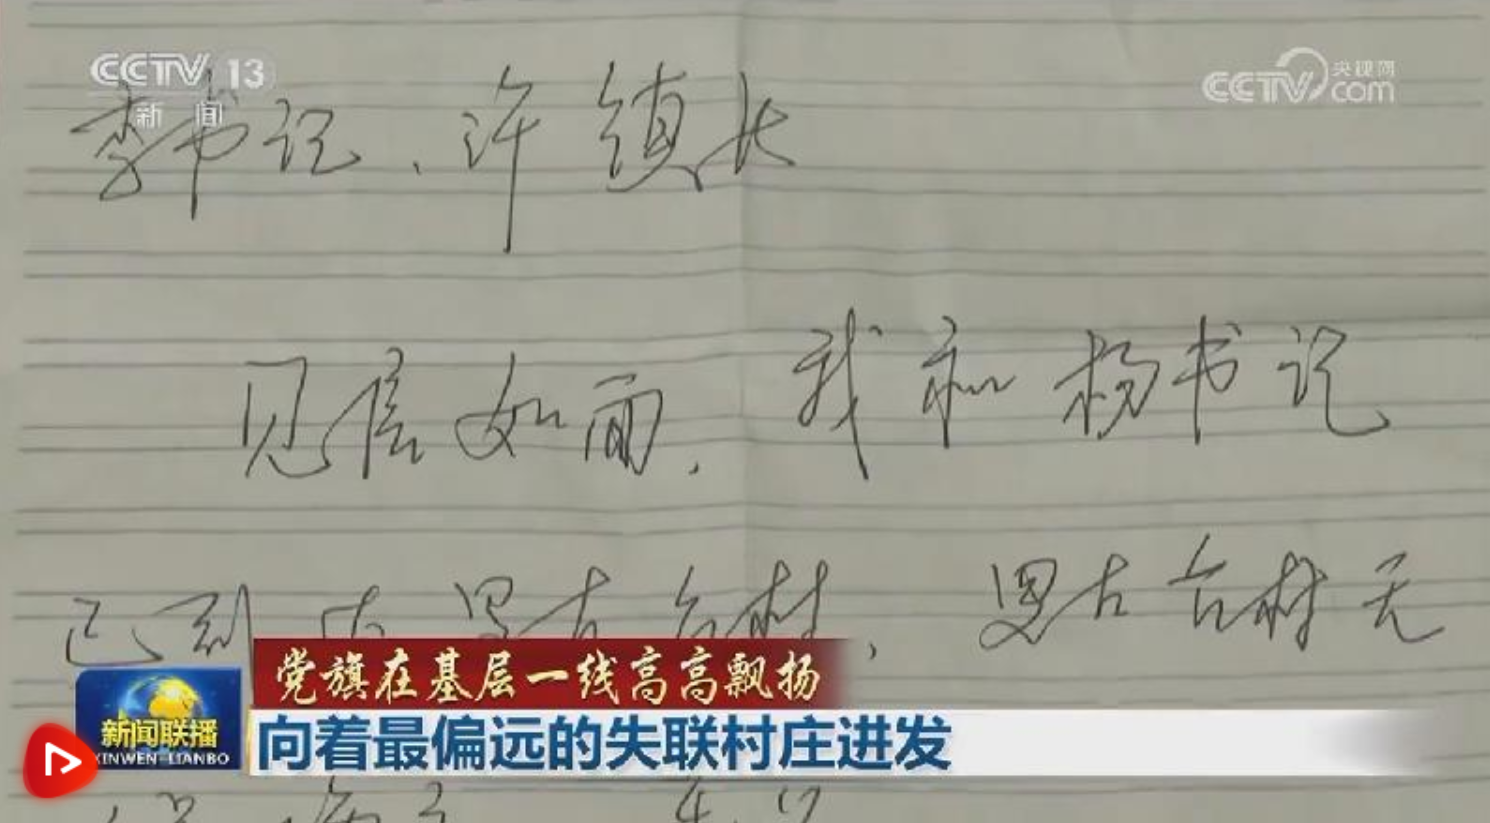 CCTV 13
新闻
央视网
CCTV.com
李书记、许镇长
见信如面,我和杨书记
已到达罗古台村,罗古台村无
党旗在基层一线高高飘扬
新闻联播
XINWEN LIANBO
向着最偏远的失联村庄进发